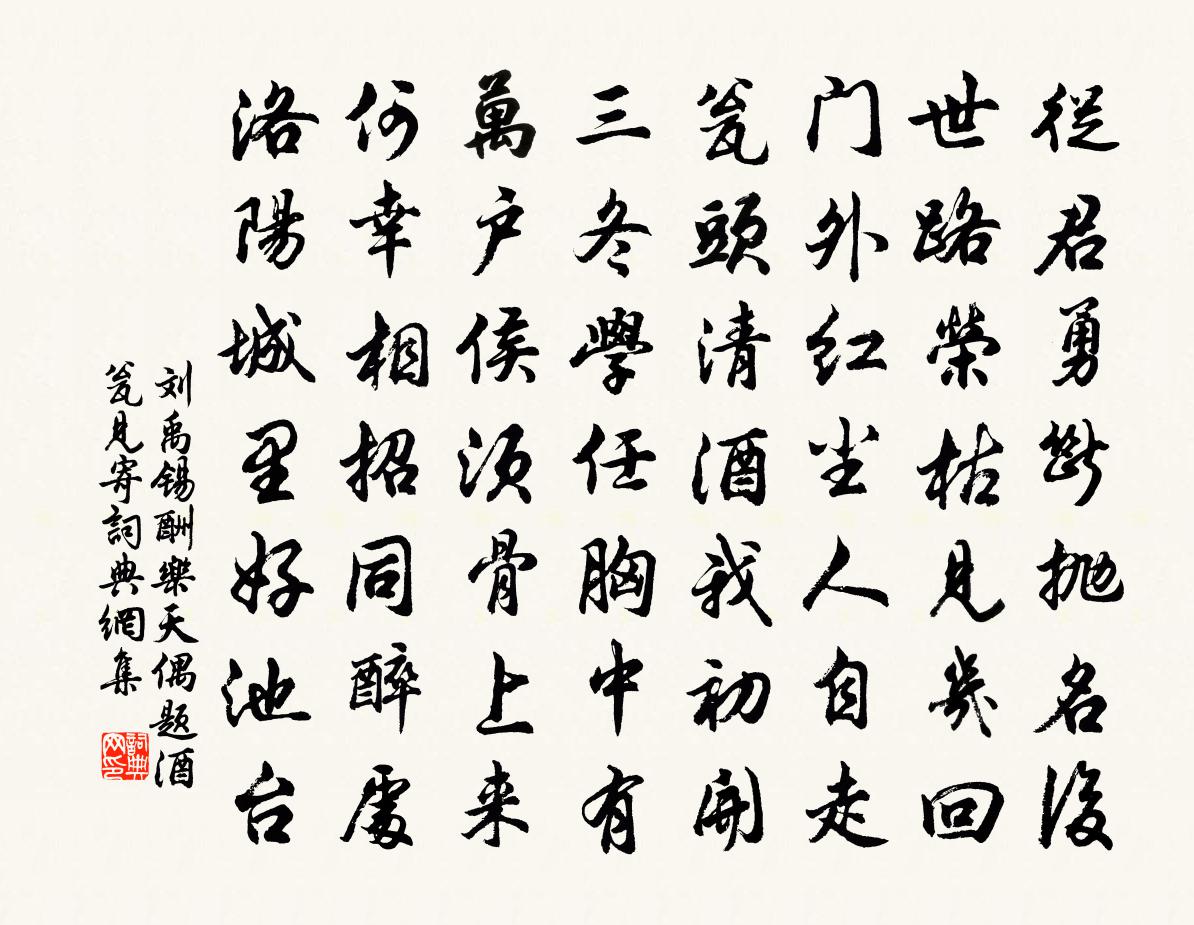 從君勇斷拋名後
世路榮枯見幾回
门外红尘人自走
瓮頭清酒我初開
三冬學任胸中有
萬户侯須骨上来
何幸相招同醉處
洛陽城里好池台
刘禹锡酬樂天偶题酒
瓮見寄詞典網集
詞典
网印